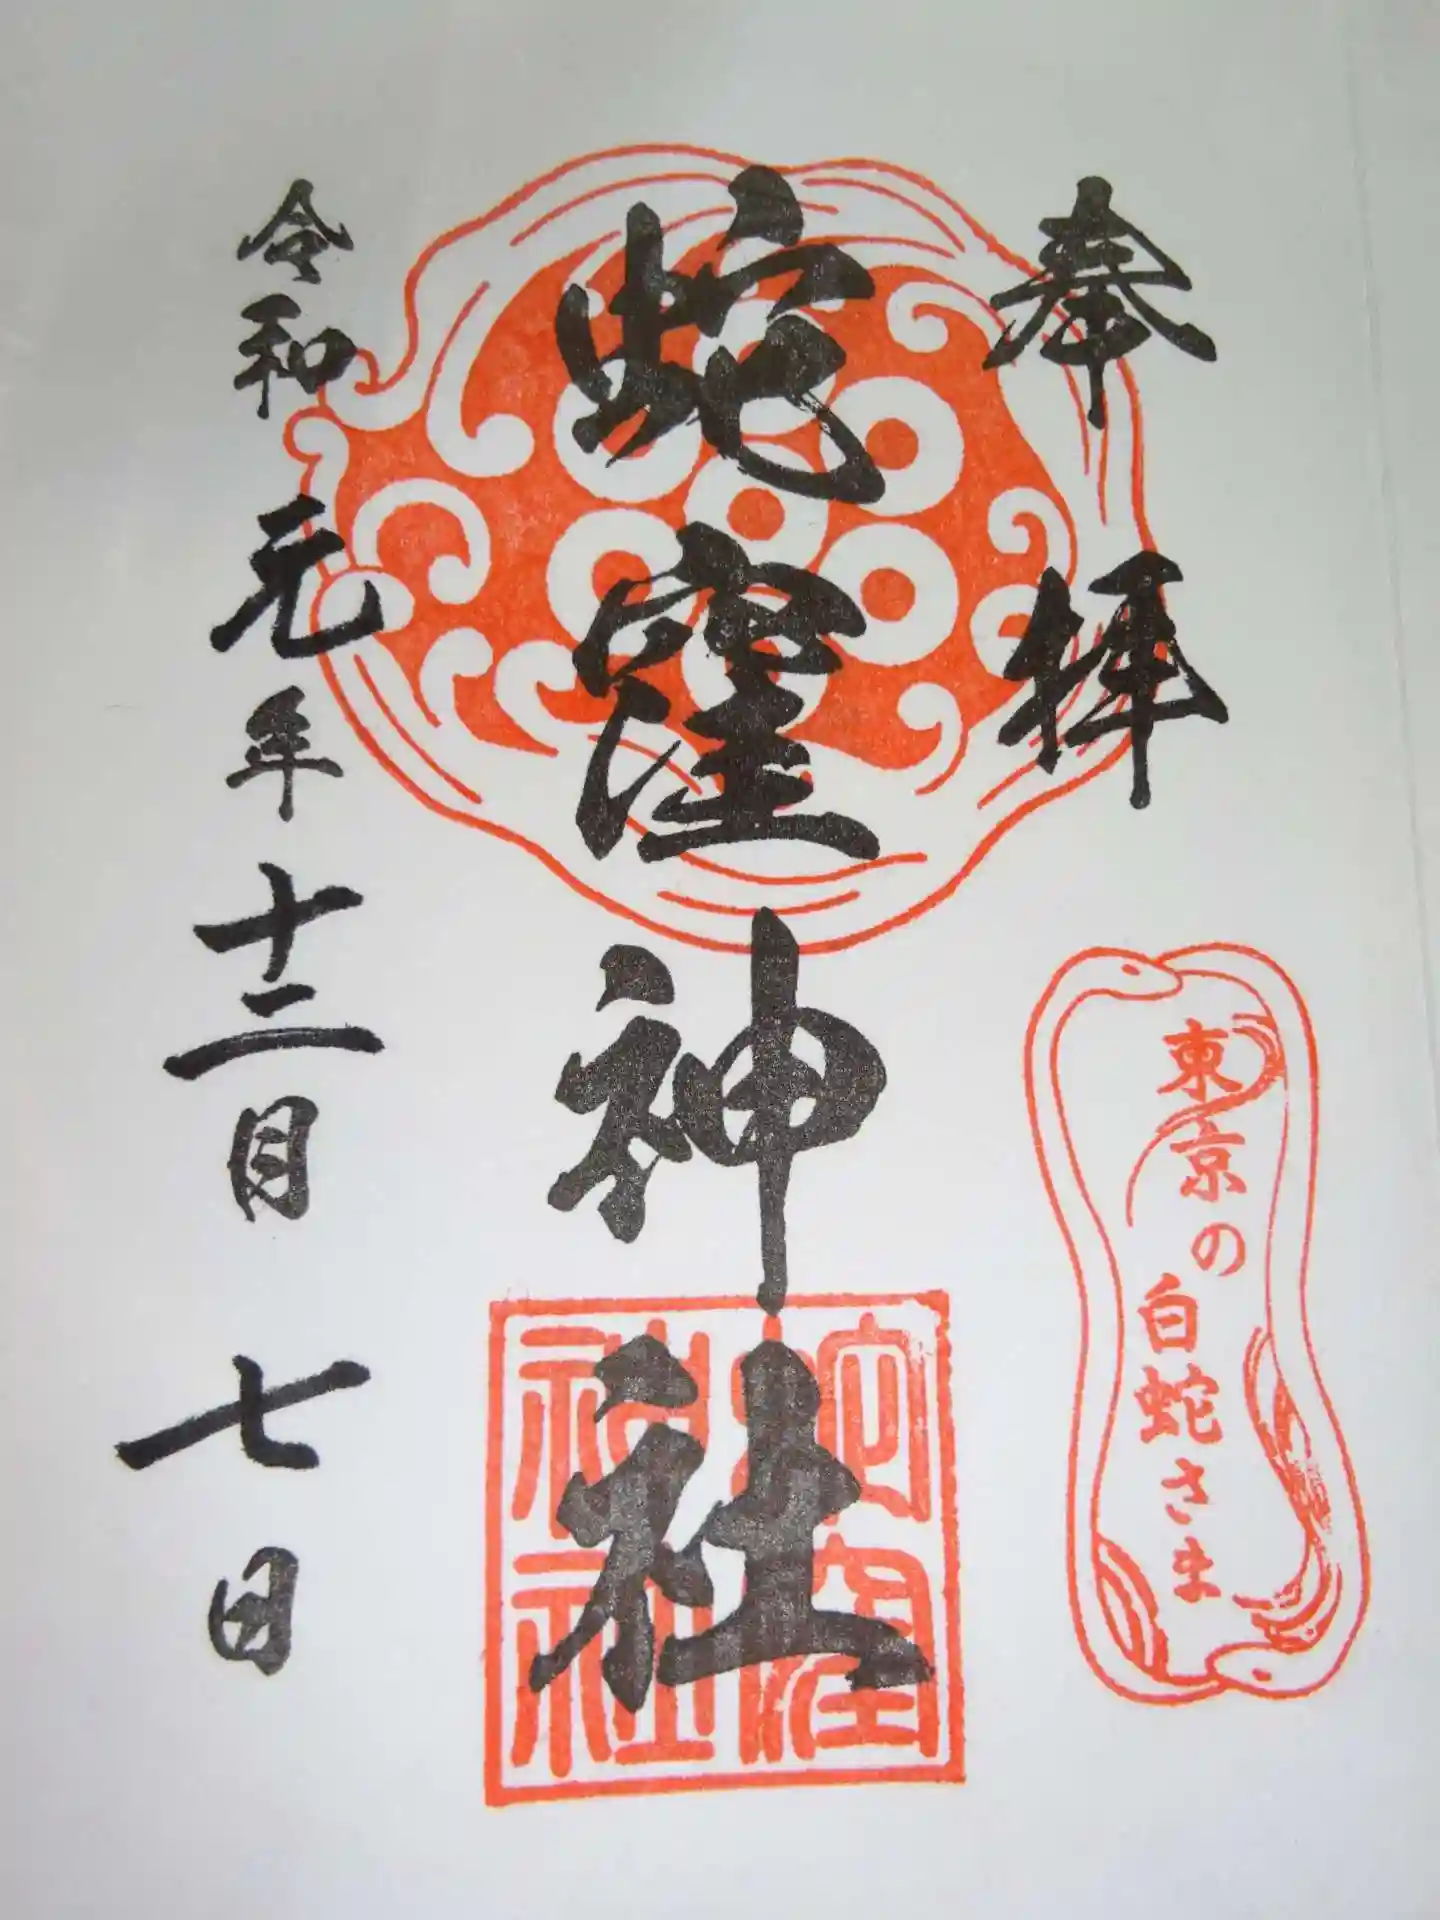 奉拝
東京の白蛇さま
蛇窪神社
蛇窪
神社
令和元年十二月七日